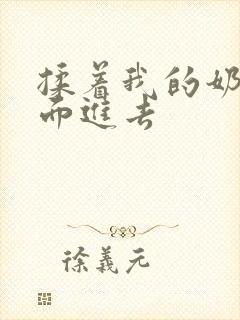 揉着我的奶
而进去
徐義元